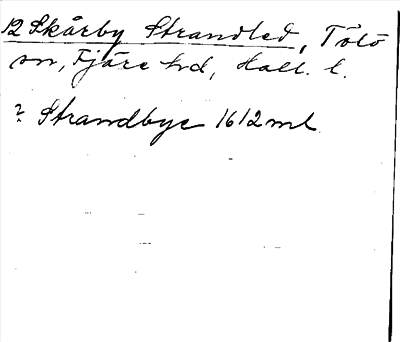 12 Skårby Strandled, Tölö
sn, Fjäre hd, Hall. l.
? Strandbye 1612 ml